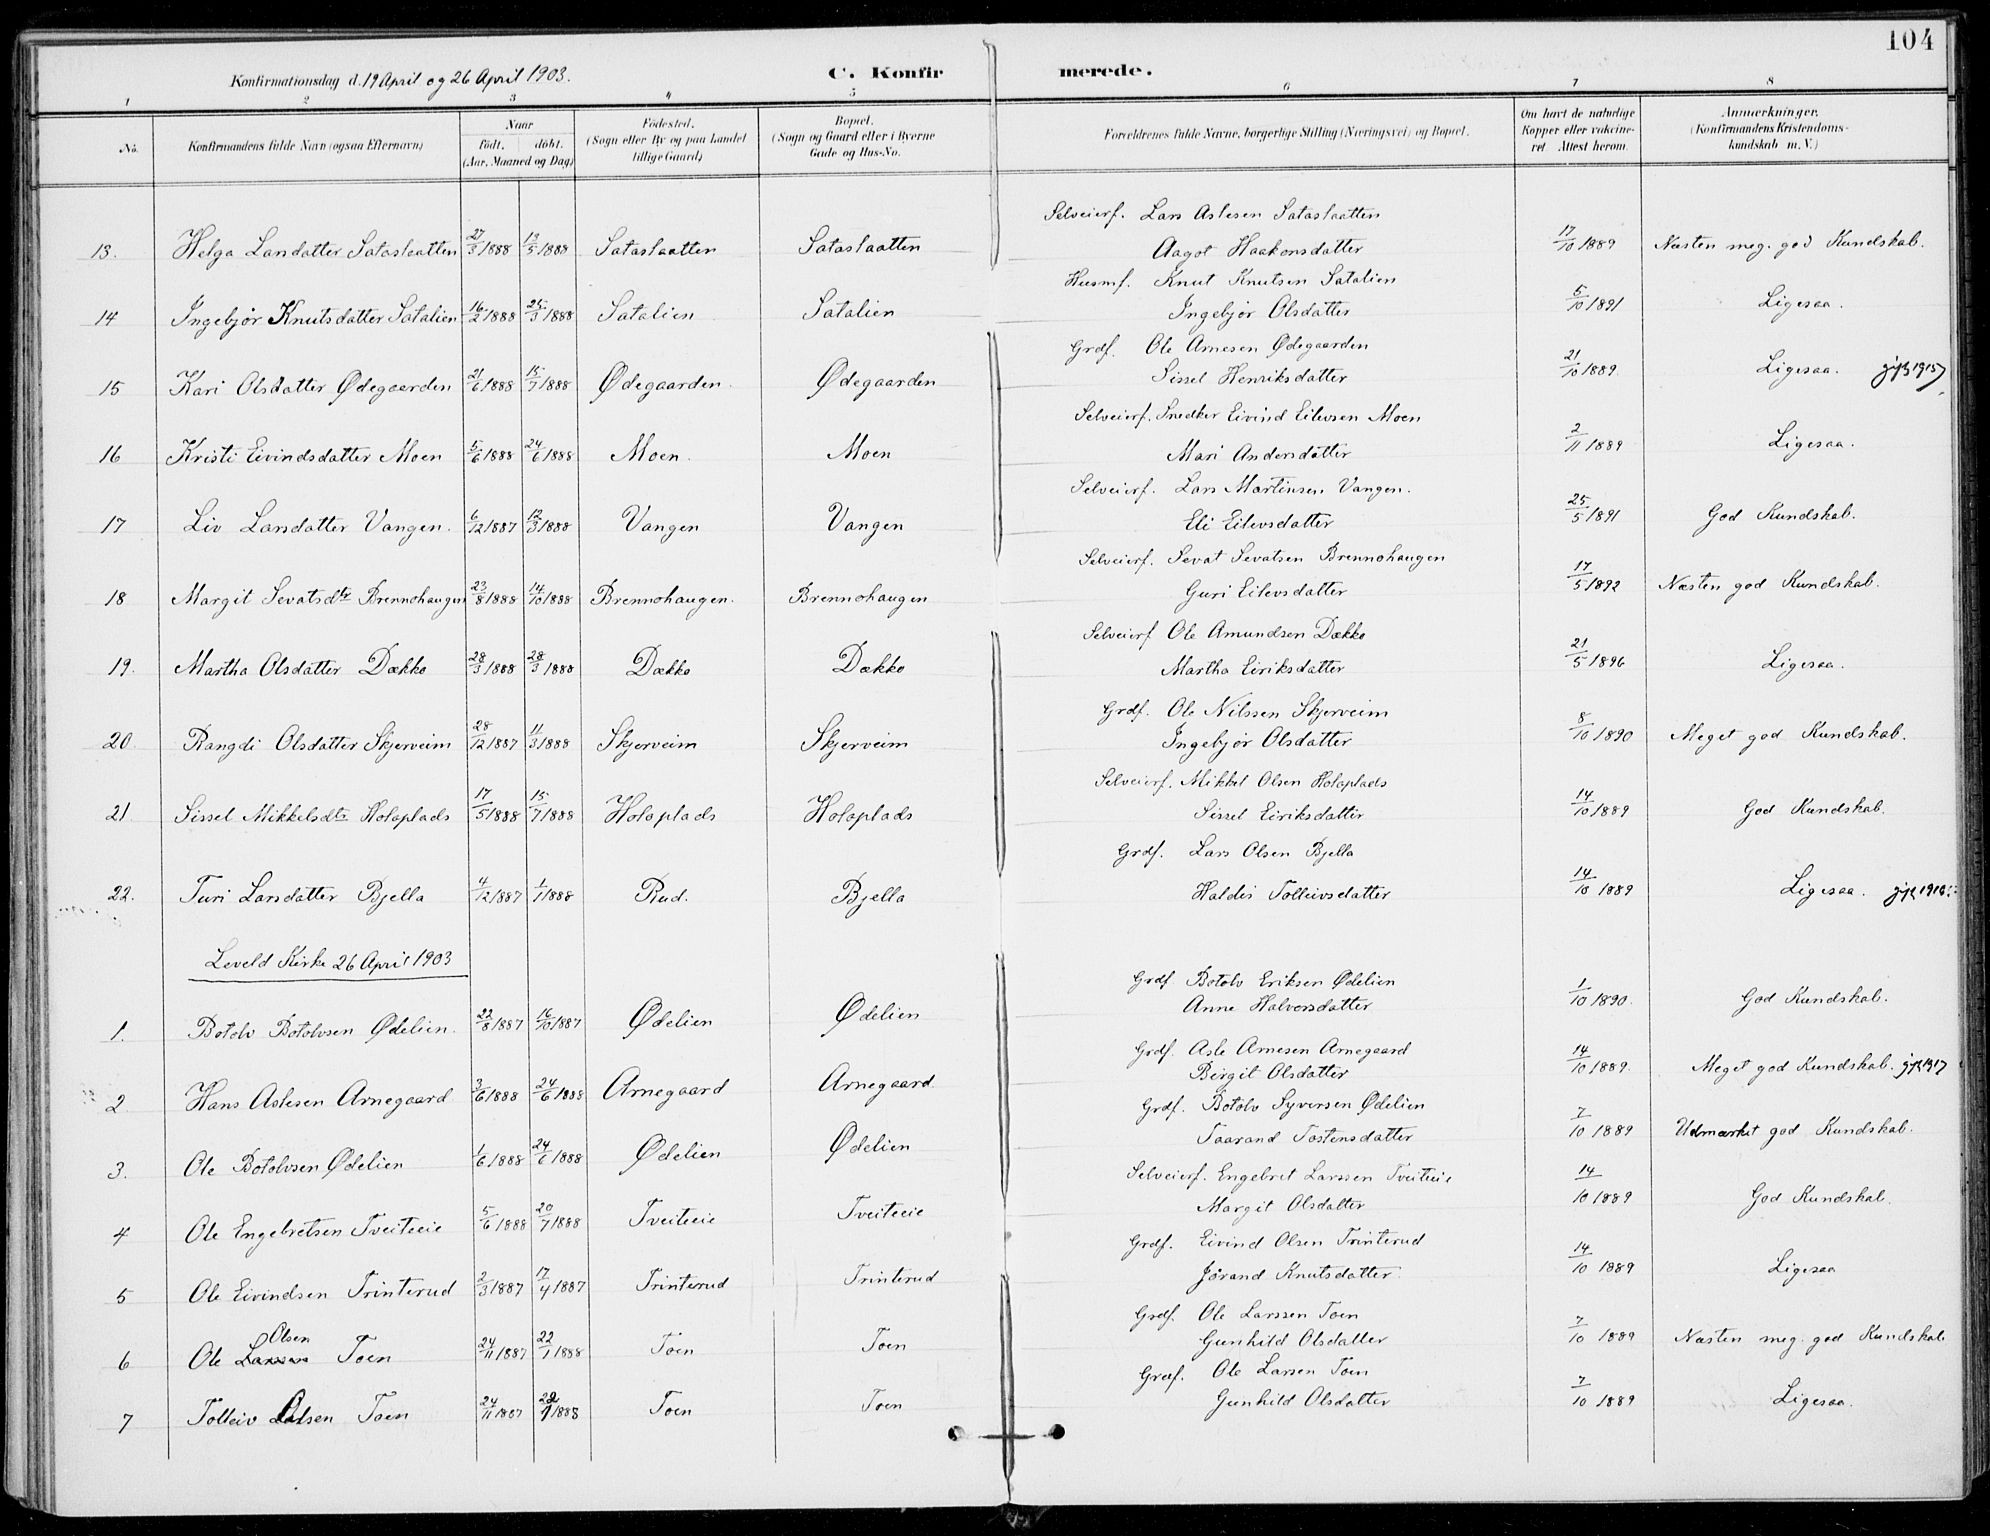 104
Konfirmationsdag d. 19 April og 26 April 1903.
C. Konfirmerede.
1 2 3 4 5 6 7 8
No. Konfirmandens fulde Navn (ogsaa Efternavn) Naar født. døbt. (Aar, Maaned og Dag) Fødested. (Sogn eller By og paa Landet tillige Gaard) Bopæl. (Sogn og Gaard eller i Byerne Gade og Hus-No. Forældrenes fulde Navne, borgerlige Stilling (Næringsvei) og Bopæl. Om havt de naturlige Kopper eller vaccineret Attest herom. Anmærkninger. (Konfirmandens Kristendomskundskab m. V.)
Selveierf. Lars Aslesen Sataslaatten
13. Helga Larsdatter Sataslaatten 27/3 1888 13/5 1888 Sataslaatten Sataslaatten Aagot Haakonsdatter 17/10 1889 Næsten meg. god Kundskab.
Husmf. Knut Knutsen Satalien
14 Ingebjør Knutsdatter Satalien 16/2 1888 25/3 1888 Satalien Satalien Ingebjør Olsdatter 5/10 1891 Ligesaa.
Grdf. Ole Arnesen Ødegaarden
15 Kari Olsdatter Ødegaarden 21/6 1888 15/7 1888 Ødegaarden. Ødegaarden Sissel Henriksdatter 21/10 1889 Ligesaa. gift 1915
Selveierf. Snedker Eivind Eilevsen Moen
16 Kristi Eivindsdatter Moen 5/6 1888 24/6 1888 Moen. Moen Mari Andersdatter 2/11 1889 Ligesaa.
Selveierf. Lars Martinsen Vangen.
17 Liv Larsdatter Vangen. 6/12 1887 12/3 1888 Vangen Vangen Eli Eilevsdatter 25/5 1891 God Kundskab.
Selveierf. Sevat Sevatsen Brennohaugen
18 Margit Sevatsdtr Brennohaugen 23/8 1888 14/10 1888 Brennohaugen. Brennohaugen Guri Eilevsdatter 17/5 1892 Næsten god Kundskab.
Selveierf Ole Amundsen Dække
19. Martha Olsdatter Dække 28/3 1888 28/3 1888 Dække Dække Martha Eiriksdatter 21/5 1896 Ligesaa.
Grdf. Ole Nilssen Skjerveim
20 Rangdi Olsdatter Skjerveim 28/12 1887 11/3 1888 Skjerveim Skjerveim Ingebjør Olsdatter 8/10 1890 Meget god Kundskab.
Selveierf. Mikkel Olsen Holaplads
21 Sissel Mikkelsdtr Holaplads 17/5 1888 15/7 1888 Holaplads Holaplads Sissel Eiriksdatter 14/10 1889 God Kundskab.
Grdf. Lars Olsen Bjella
22. Turi Larsdatter Bjella 4/12 1887 1/1 1888 Rud. Bjella Haldis Tolleivsdatter 14/10 1889 Ligesaa.
Leveld Kirke 26 April 1903
Grdf Botolv Eriksen Ødelien
1. Botolv Botolvsen Ødelien. 22/8 1887 16/10 1887 Ødelien Ødelien Anne Halvorsdatter 1/10 1890. God Kundskab.
Grdf. Asle Arnesen Arnegaard
2 Hans Aslesen Arnegaard 3/6 1888 24/6 1888 Arnegaard Arnegaard Birgit Olsdatter 14/10 1889. Meget god Kundskab. gift 1917
Grdf. Botolv Syversen Ødelien
3. Ole Botolvsen Ødelien 1/6 1888 24/6 1888 Ødelien Ødelien Taarand Tostensdatter 7/10 1889 Udmærket god Kundskab.
Selveierf. Engebret Larssen Tveiteie
4 Ole Engebretsen Tveiteeie 5/6 1888 20/7 1888 Tveiteeie Tveiteeie Margit Olsdatter 14/10 1889 God Kundskab.
Grdf. Eivind Olsen Trinterud
5 Ole Eivindsen Trinterud 2/3 1887 17/4 1887 Trinterud Trinterud Jørand Knutsdatter. 14/10 1889 Ligesaa
Grdf. Ole Larssen Toen
Olsen
6 Ole Larssen Toen 24/11 1887 22/1 1888 Toen Toen Gunhild Olsdatter 7/10 1889 Næsten meg. god Kundskab
Grdf. Ole Larsen Toen
7 Tolleiv Olsen Toen 24/11 1887 22/1 1888 Toen Toen Gunhild Olsdatter 7/10 1889 Ligesaa.